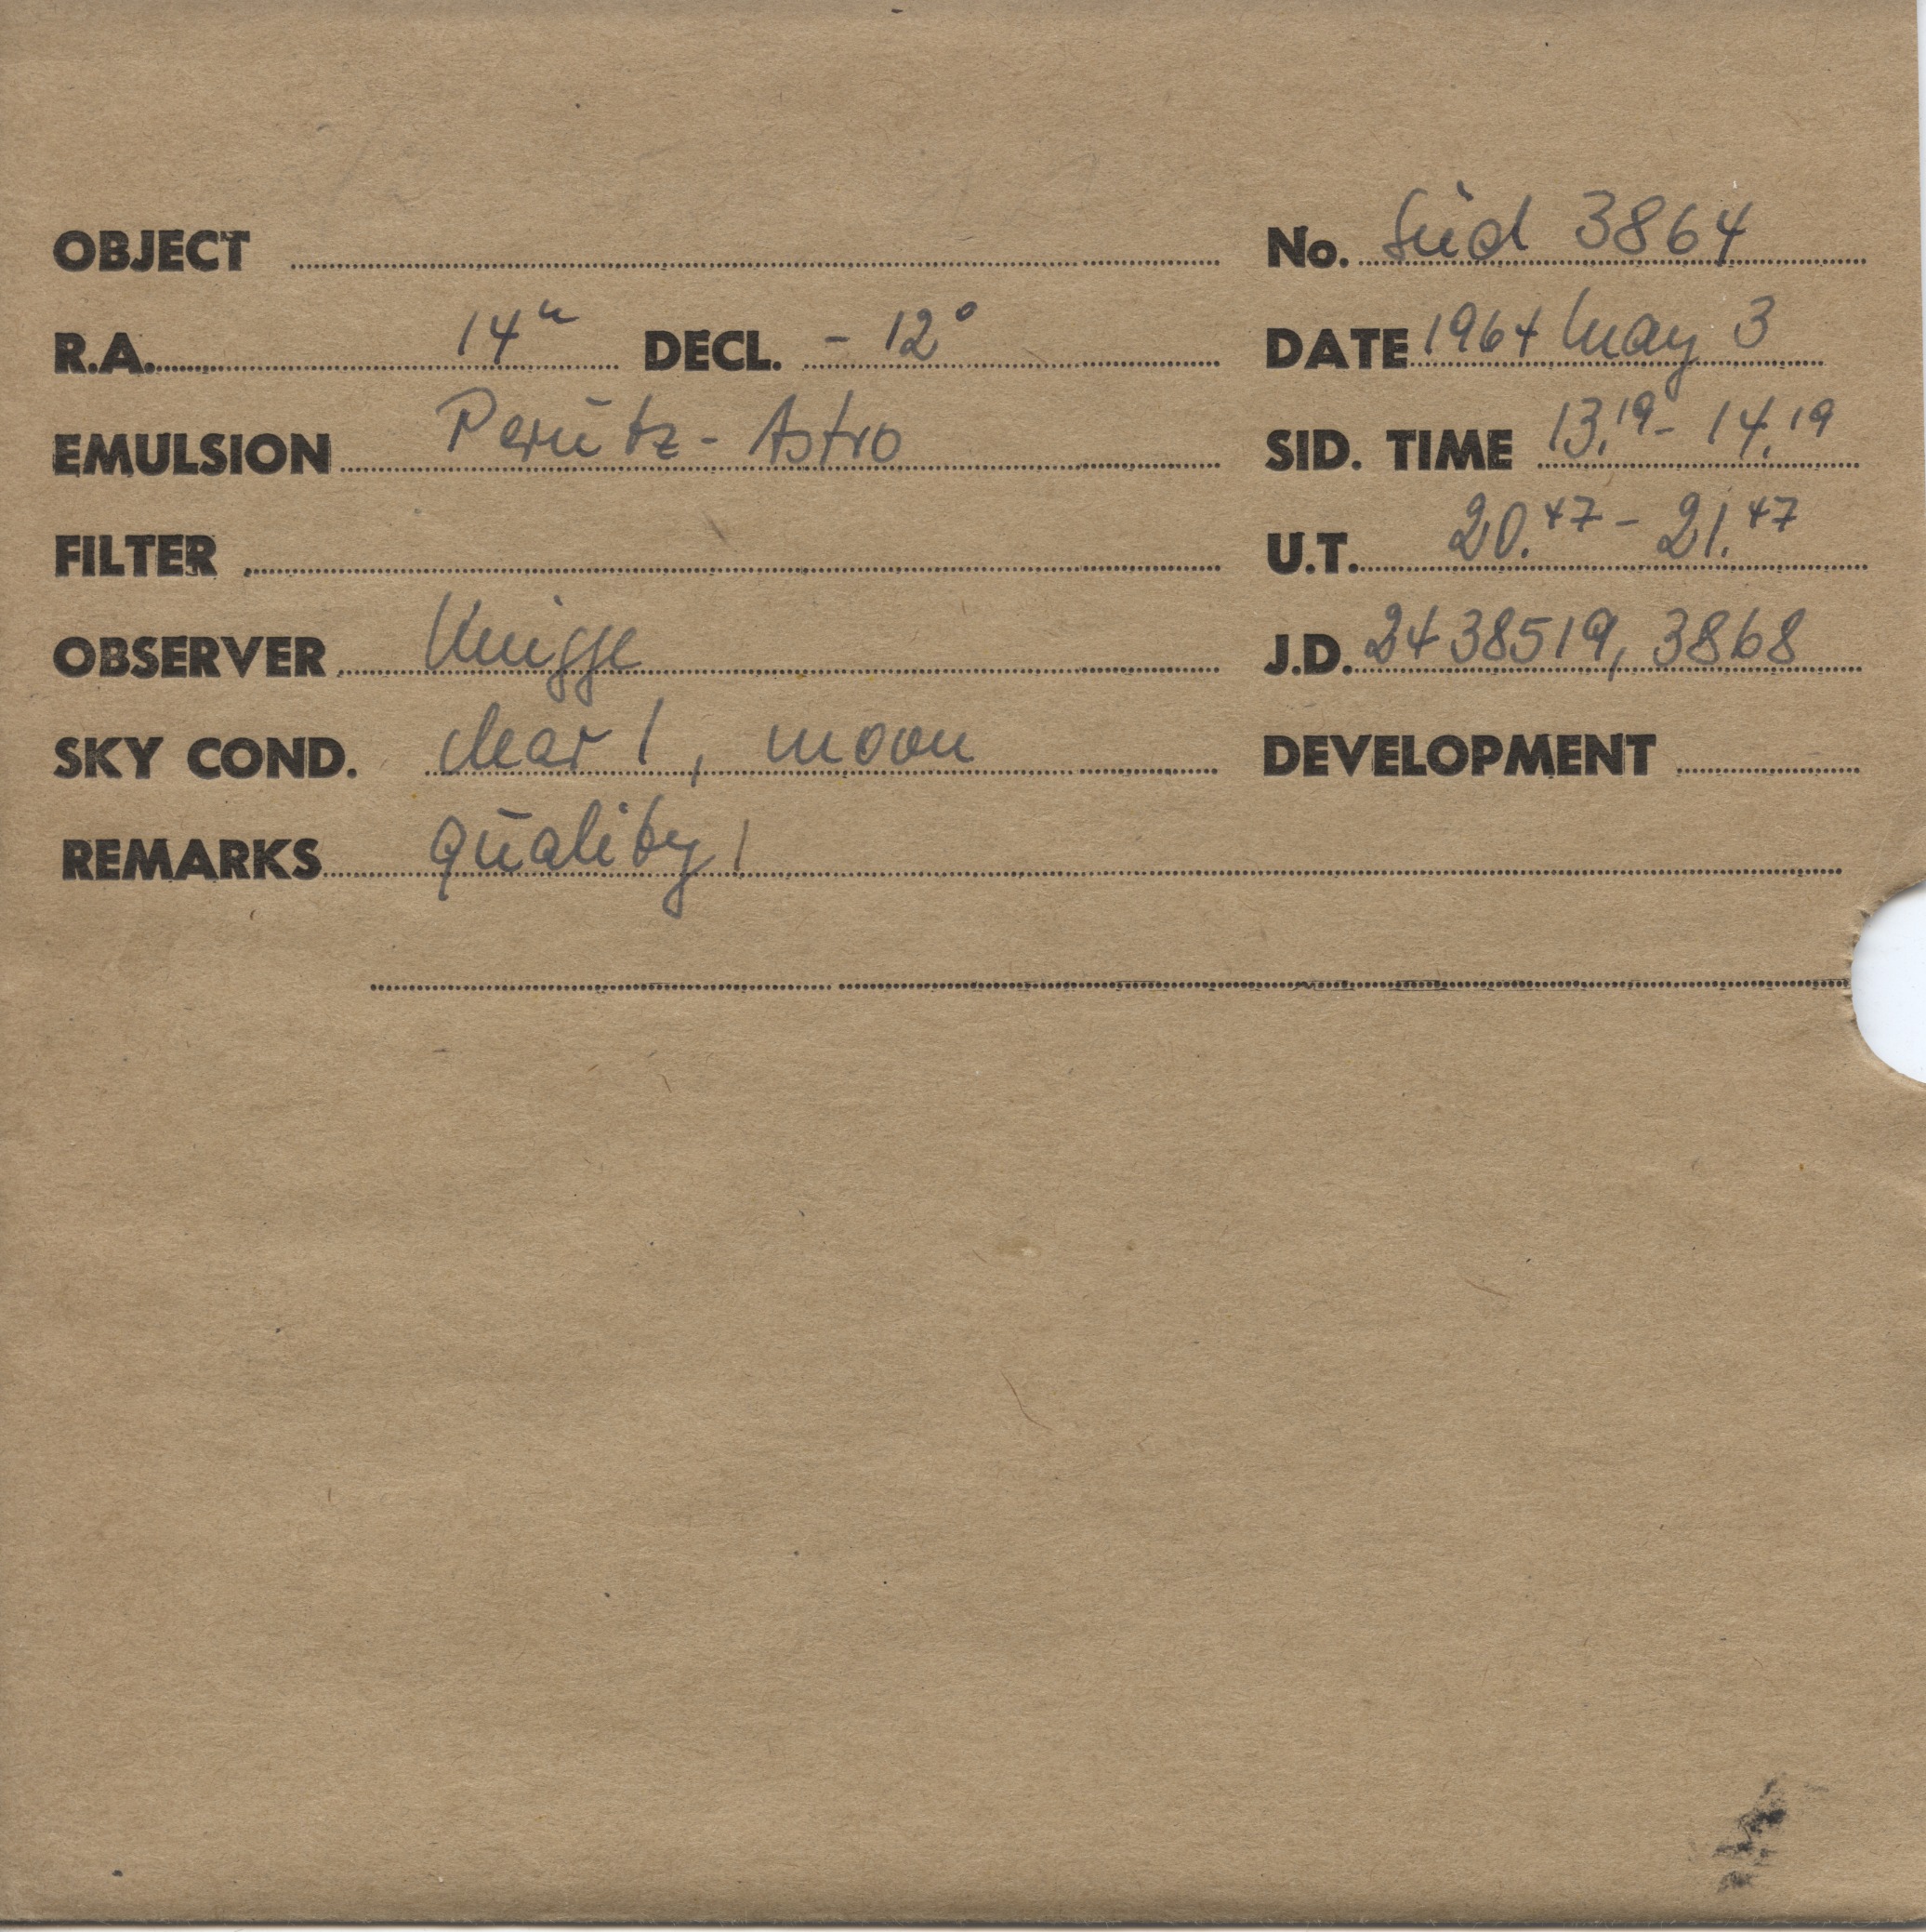 OBJECT No. Süd 3864
R.A. 14h DECL. - 12° DATE 1964 May 3
EMULSION Perutz - Astro SID. TIME 13.19 - 14.19
FILTER U.T. 20.47 - 21.47
OBSERVER Knigge J.D. 2438519, 3868
SKY COND. clear 1, moon DEVELOPMENT
REMARKS quality 1